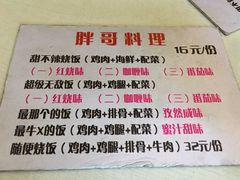 胖哥料理
16元/份
甜不辣烧饭（鸡肉+海鲜+配菜）
（一）红烧味 （二）咖喱味 （三）番茄味
超级无敌饭（鸡肉+鸡腿+配菜）
（一）红烧味 （二）咖喱味 （三）番茄味
最那个的饭（鸡肉+排骨+配菜）孜然咸味
最牛X的饭（鸡肉+鸡腿+配菜）蜜汁甜味
随便烧饭（鸡肉+鸡腿+排骨+牛肉）32元/份